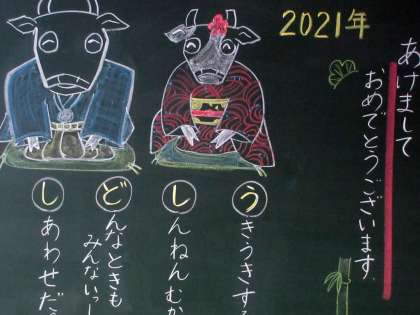 2021年
あけまして
おめでとうございます。
うきうきする
しんねんむか
どんなときも
みんないっし
しあわせだ